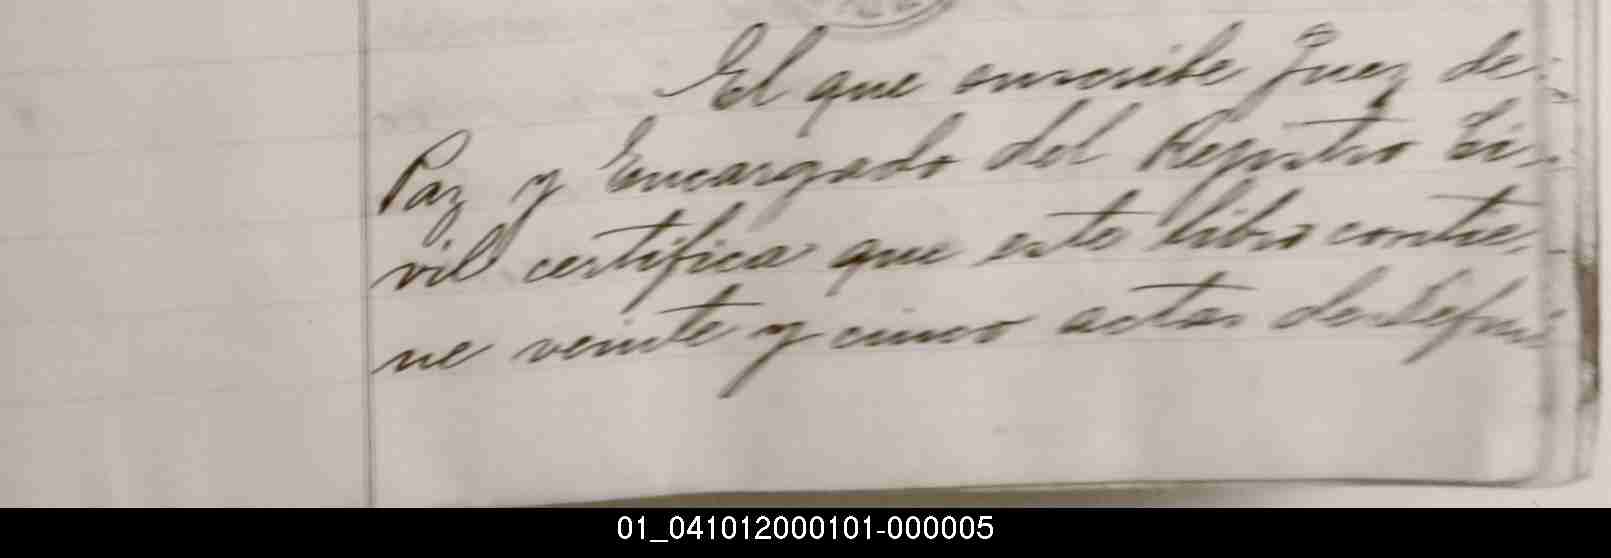 El que suscribe Juez de
Paz y Encargado del Registro Ci-
vil certifica que este libro contie-
ne veinte y cinco actas de Defun
01_041012000101-000005